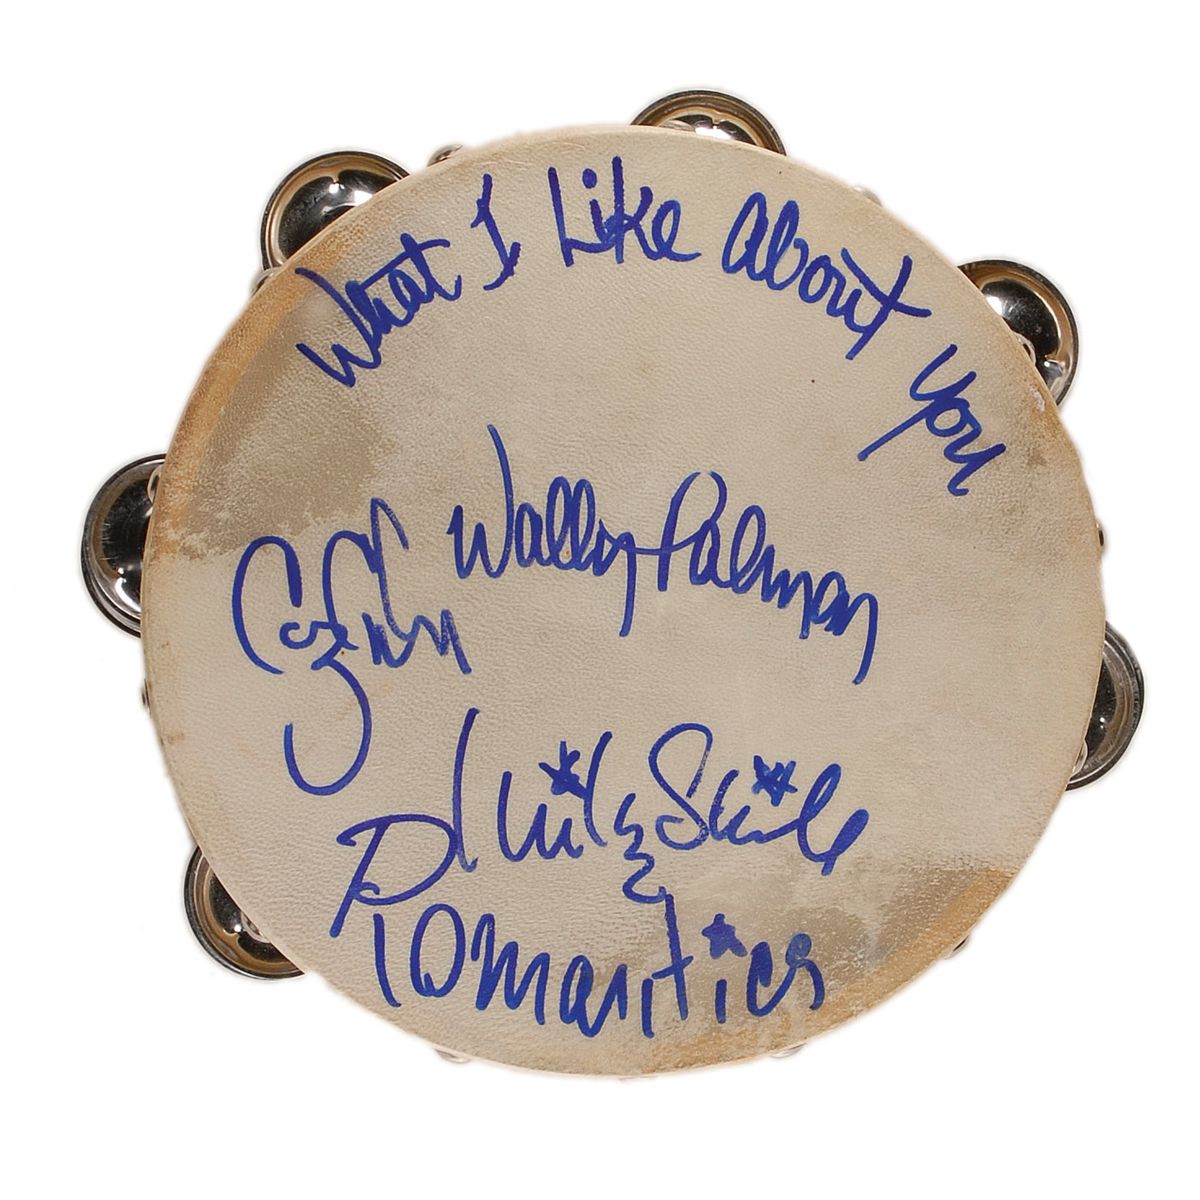 What I Like About You
Wally Palmar
Mike Skill
Romantics